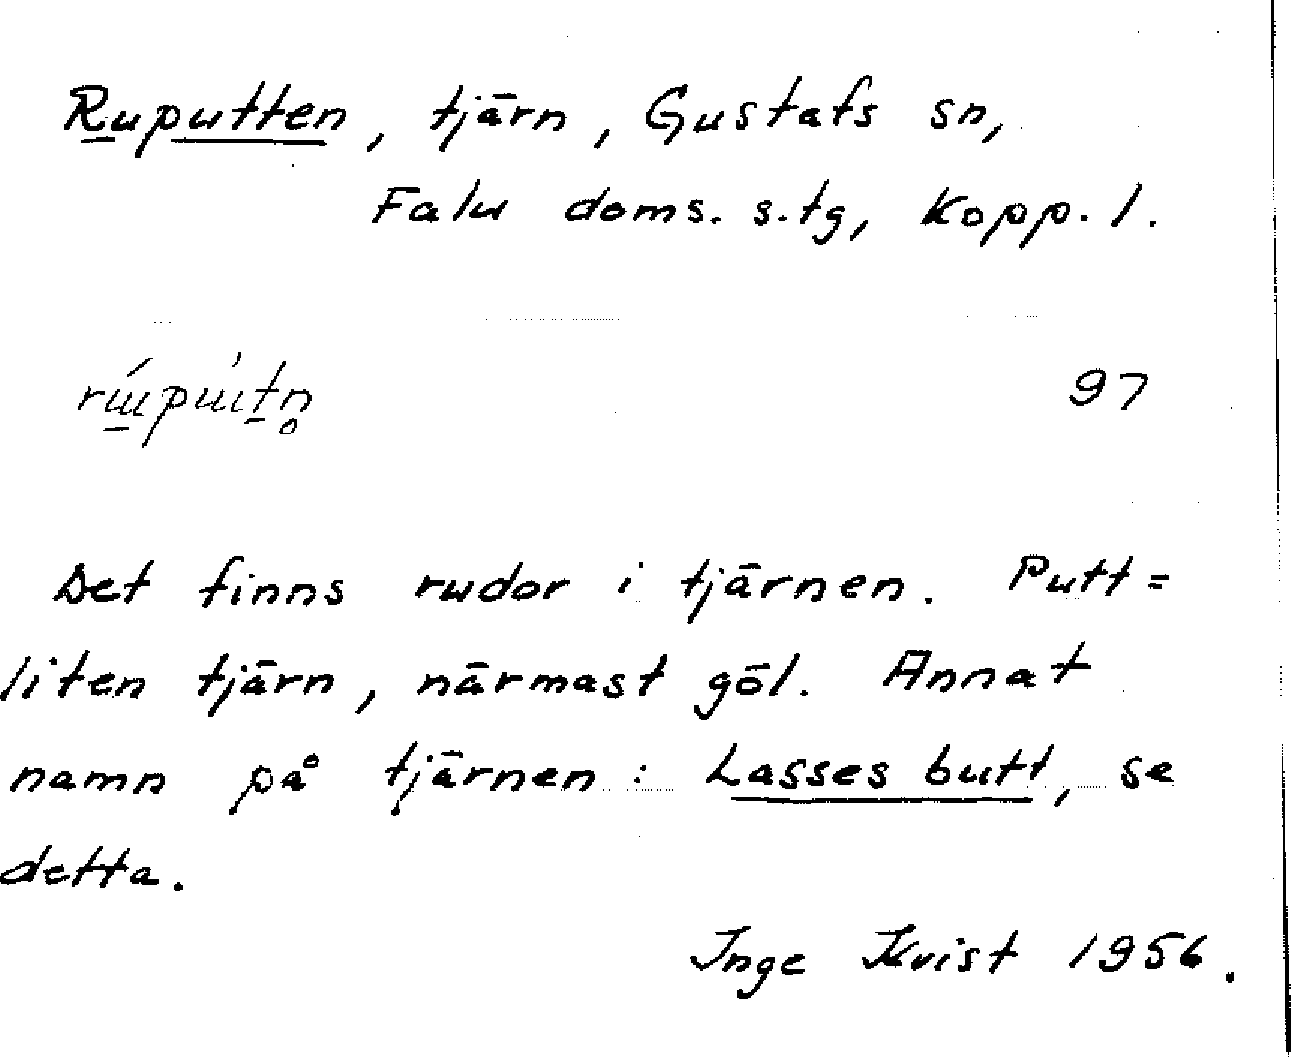 Ruputten, tjärn, Gustafs sn,
Falu doms. s.tg, Kopp. l.
97
Det finns rudor i tjärnen. Putt =
liten tjärn, närmast göl. Annat
namn på tjärnen: Lasses butt, se
detta.
Inge Kvist 1956.